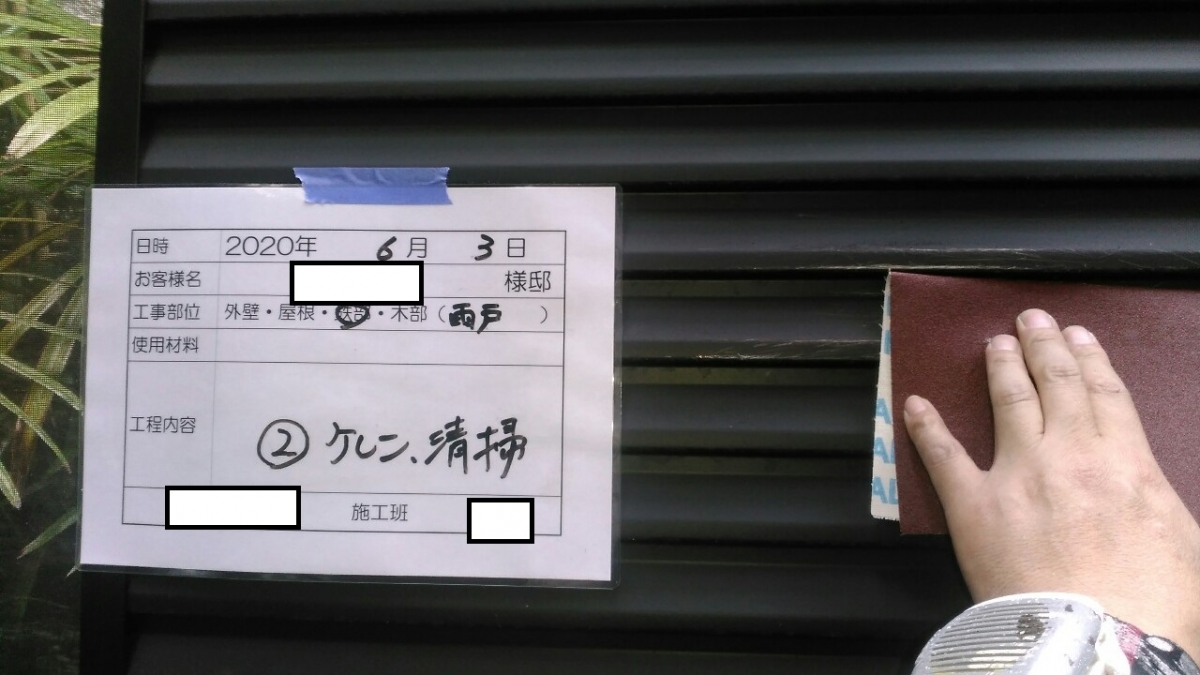 日時 2020年 6月 3日
お客様名 様邸
工事部位 外壁・屋根・鉄部・木部（雨戸 ）
使用材料
工程内容 ② ケレン、清掃
施工班